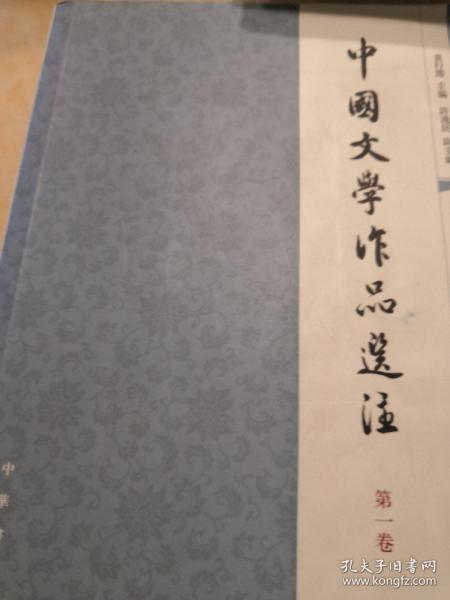 袁行霈 主編 許逸民 副主編
中國文學作品選注
第一卷
中華書
孔夫子旧书网
www.kongfz.com